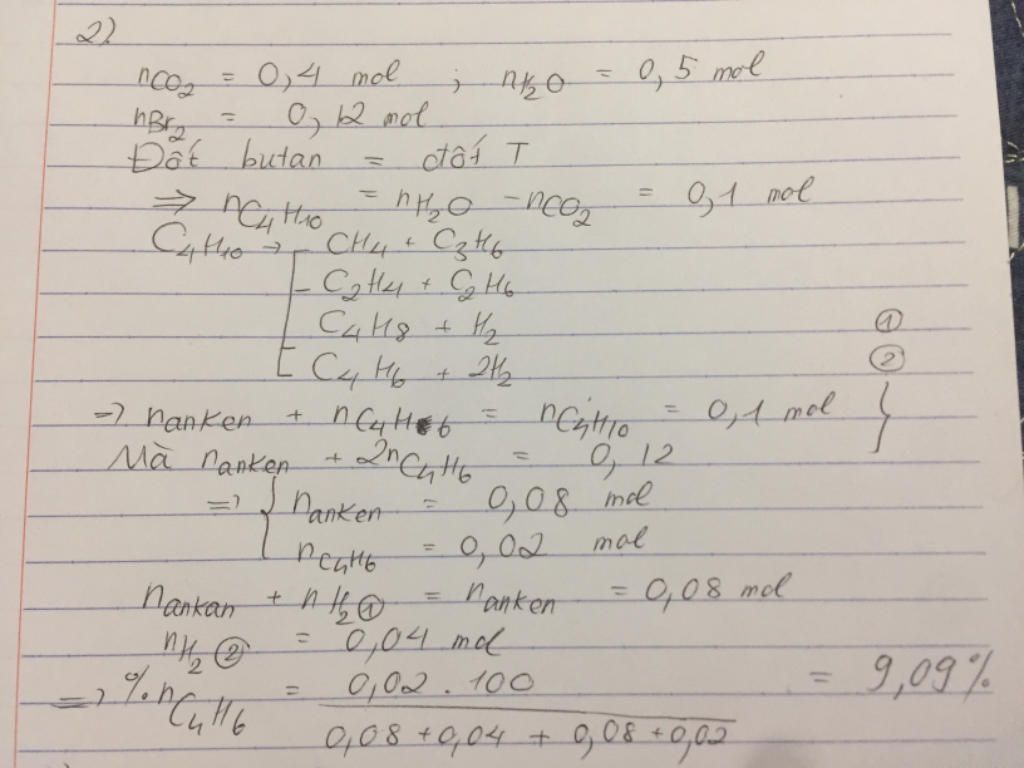 2)
nCO₂ = 0,4 mol ; nH₂O = 0,5 mol
nBr₂ = 0,12 mol
Đốt butan = đốt T
⇒ nC₄H₁₀ = nH₂O - nCO₂ = 0,1 mol
C₄H₁₀ → CH₄ + C₃H₆
C₂H₄ + C₂H₆
C₄H₈ + H₂ ①
C₄H₆ + 2H₂ ②
=) nanken + nC₄H₆ = nC₄H₁₀ = 0,1 mol }
Mà nanken + 2nC₄H₆ = 0,12
=) { nanken = 0,08 mol
nC₄H₆ = 0,02 mol
nankan + nH₂① = nanken = 0,08 mol
nH₂② = 0,04 mol
=) %nC₄H₆ = 0,02 . 100 = 9,09%
0,08 + 0,04 + 0,08 + 0,02